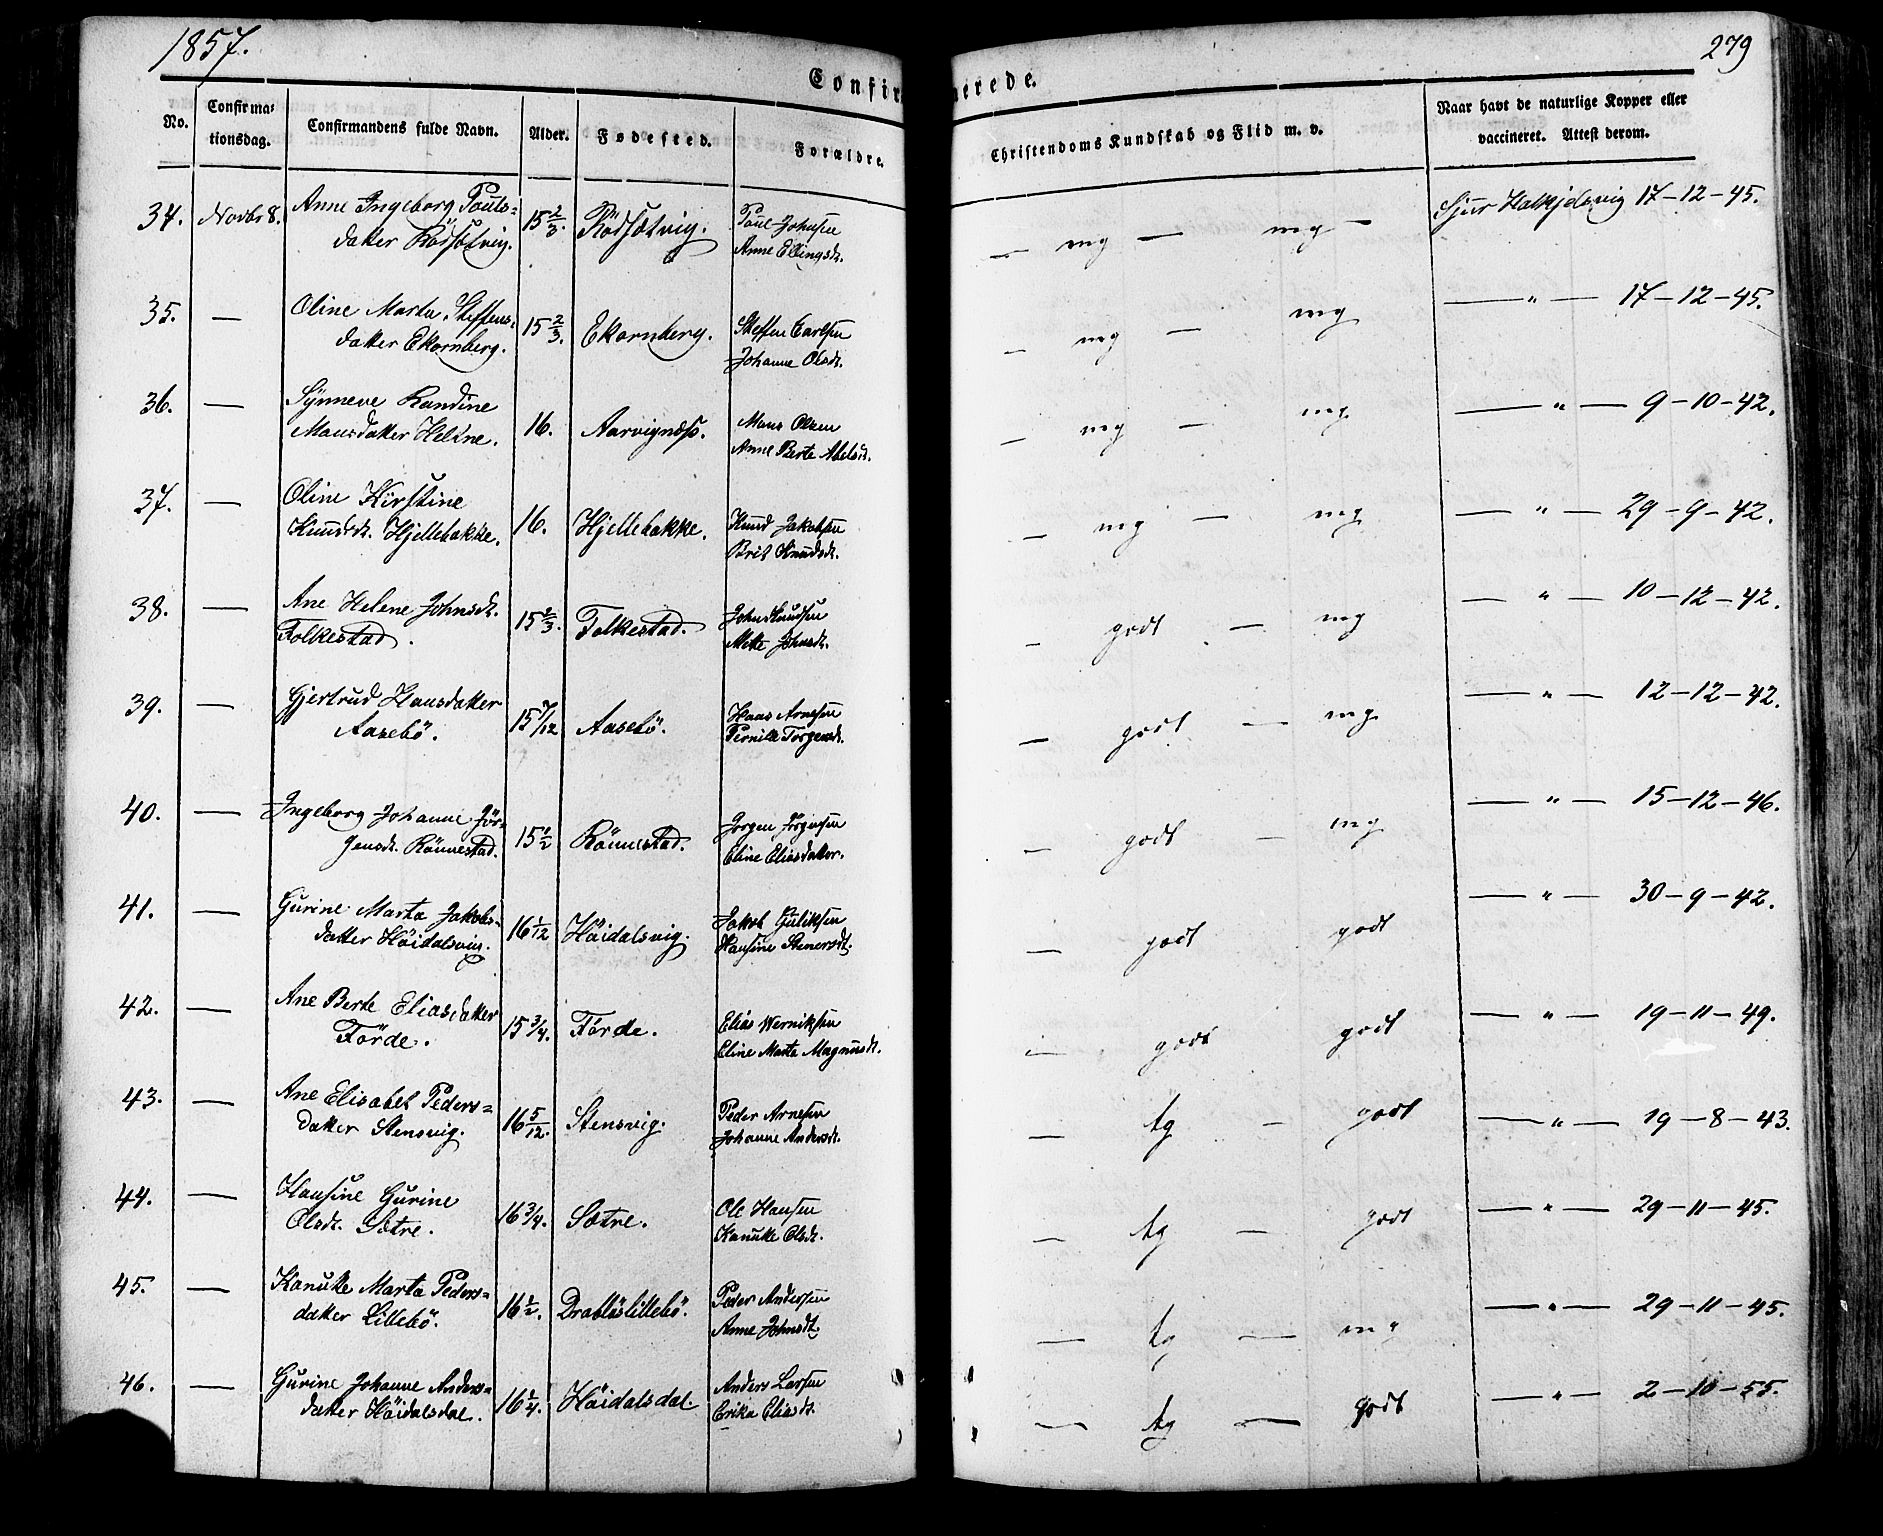 1857.
279
Confirmerede.
No.
Confirma-
tionsdag.
Confirmandens fulde Navn.
Alder.
Fødested.
Forældre.
Christendoms Kundskab og Flid m. v.
Naar havt de naturlige Kopper eller
vaccineret. Attest derom.
34. Novbr 8. Anne Ingeborg Pouls=
datter Rödsætvig. 15 2/3. Rödsætvig. Poul Johnsen
Anne Ellingsdt.
— mg — mg —
Sjur Halkjelsvig 17-12-45.
35. — Oline Marta Steffens=
datter Ekornberg. 15 2/3. Ekornberg. Steffen Carlsen
Johanne Olsdt.
— mg — mg
— " — 17-12-45.
36. — Synneve Randine
Mansdatter Helsne. 16. Aarvignæss. Mons Olsen
Anne Berte Abelsdt.
— mg — mg
— " — 9-10-42.
37. — Oline Kirstine
Knudsdt. Hjellebakke. 16. Hjellebakke. Knud Jakobsen
Brit Knudsdt.
— mg — mg
— " — 29-9-42.
38. — Ane Helene Johnsdt.
Folkestad. 15 2/3. Folkestad. John Knudsen
Mette Johnsdt.
— godt — mg
— " — 10-12-42.
39. — Gjertrud Hansdatter
Aasebö. 15 7/12 Aasebö. Hans Arnesen
Pernille Torgersdt.
— godt — mg
— " — 12-12-42.
40. — Ingeborg Johanne Jör=
gensdt. Rönnestad. 15 1/2 Rönnestad. Jörgen Jörgensen
Eline Eliasdatter.
— godt — mg
— " — 15-12-46.
41. — Gurine Marta Jakobs=
datter Höidalsvig. 16 1/12 Höidalsvig. Jakob Guliksen
Hansine Stenersdt.
— godt godt
— " — 30-9-42.
42. — Ane Berte Eliasdatter
Förde. 15 3/4. Förde. Elias Werniksen
Eline Marta Magnusdt.
— godt godt
— " — 19-11-49.
43. — Ane Elisabet Peders=
datter Stensvig. 16 5/12. Stensvig. Peder Arnesen
Johanne Andersdt.
— tg — godt
— " — 19-8-43.
44. — Hansine Gurine
Olsdt. Sætre. 16 3/4. Sætre. Ole Hansen
Kanutte Olsdt.
— tg — godt
— " — 29-11-45.
45. — Kanutte Marta Peders=
datter Lillebö. 16 1/2. Drablöslillebö. Peder Andersen
Anne Johnsdt.
— tg — mg
— " — 29-11-45.
46. — Gurine Johanne Anders=
datter Höidalsdal. 16 1/4. Höidalsdal. Anders Larsen
Erika Eliasdt.
— tg — godt
— " — 2-10-55.